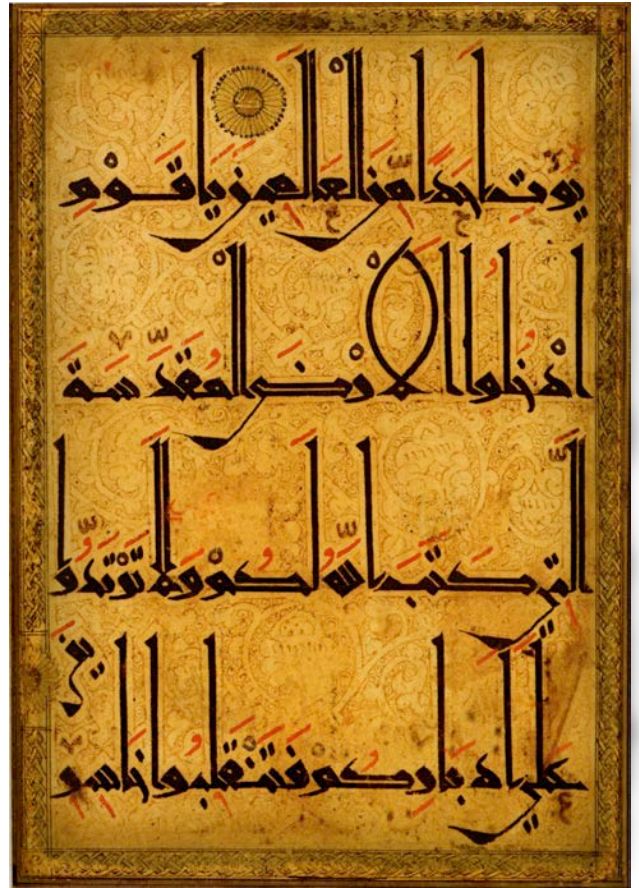 يُؤْتِ اَحَدًا مِنَ الْعَالَمِينَ يَا قَوْمِ
ادْخُلُوا الْاَرْضَ الْمُقَدَّسَةَ
الَّتِي كَتَبَ اللّٰهُ لَكُمْ وَلَا تَرْتَدُّوا
عَلَى اَدْبَارِكُمْ فَتَنْقَلِبُوا خَاسِرِينَ